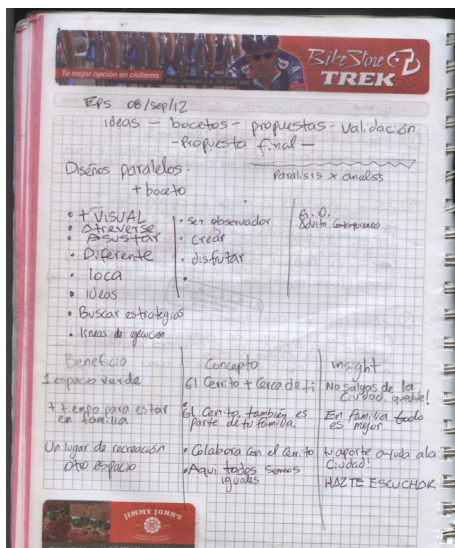 Bike Store
TREK
Tu mejor opción en ciclismo
EPS 08/sep/12
ideas - bocetos - propuestas - validación
- Propuesta final -
Diseños paralelos.
+ boceto
Paralisis x analisis
• + VISUAL
• Atreverse
• Asustar
• Diferente
• loca
• ideas
• Buscar estrategias
• líneas de ejecución
• ser observador
• crear
• disfrutar
•
G.O.
Adulto Contemporaneo
Beneficio
1 espacio verde
+ tiempo para estar
en familia
Un lugar de recreación
otro espacio
Concepto
El Cerrito + Cerca de ti
El Cerrito, también es
parte de tu familia.
• Colabora con el Cerrito
• Aqui todos somos
iguales
insight
No salgas de la
Ciudad,
En Familia todo
es mejor.
tu aporte ayuda a la
Ciudad!
HAZTE ESCUCHAR
JIMMY JOHN'S